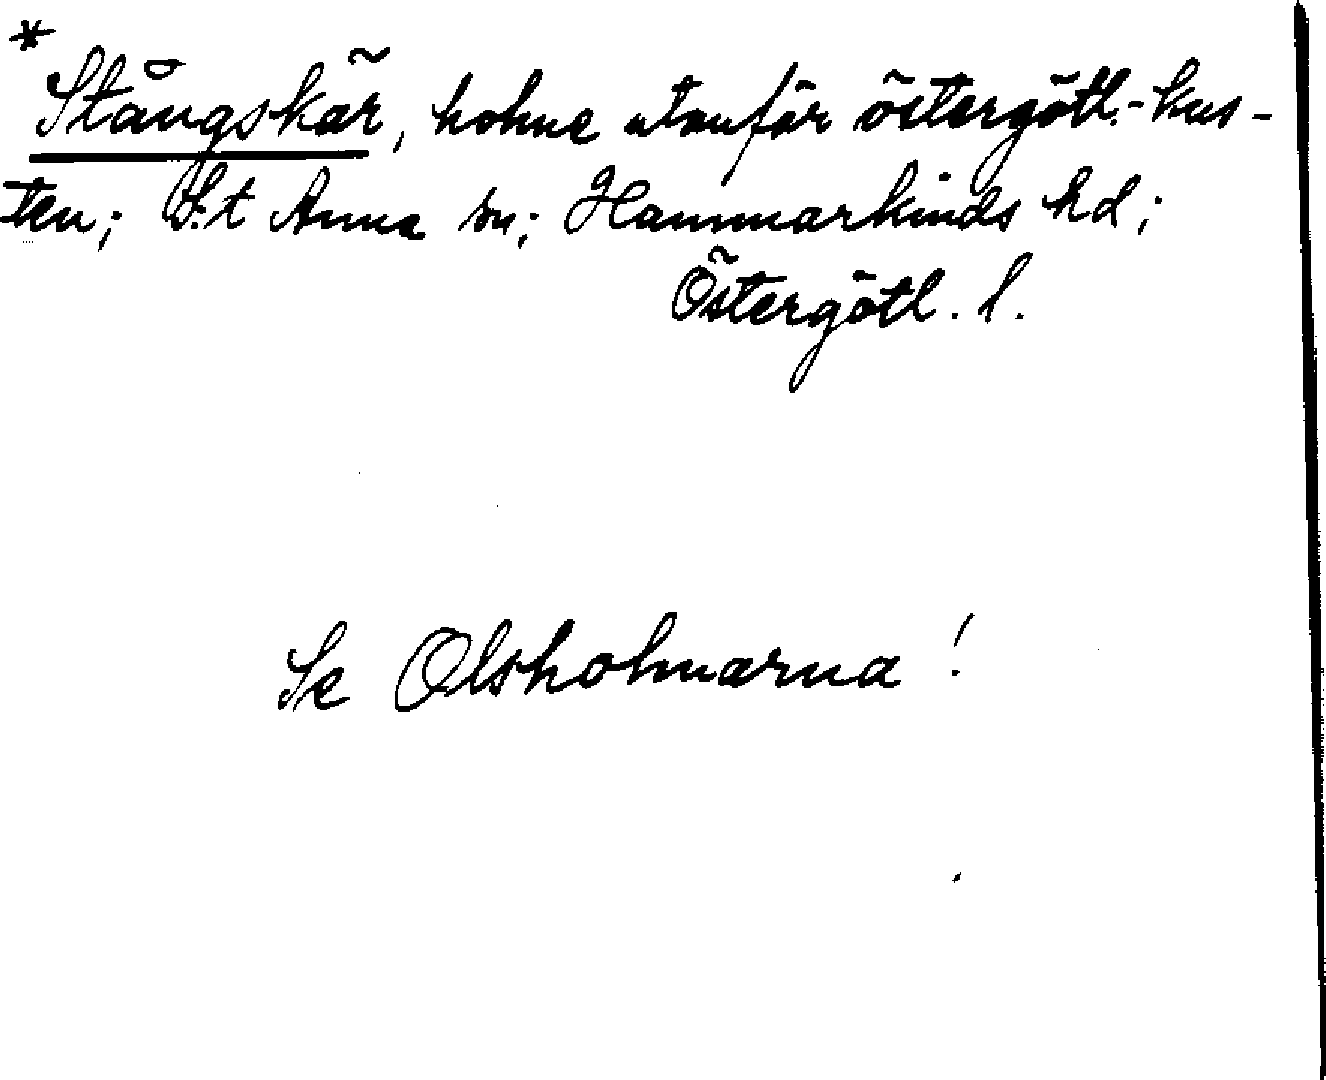 *
Stångskär, holme utanför östergötl.-kus-
ten; S:t Anna sn; Hammarkinds hd;
Östergötl. l.
Se Olsholmarna!